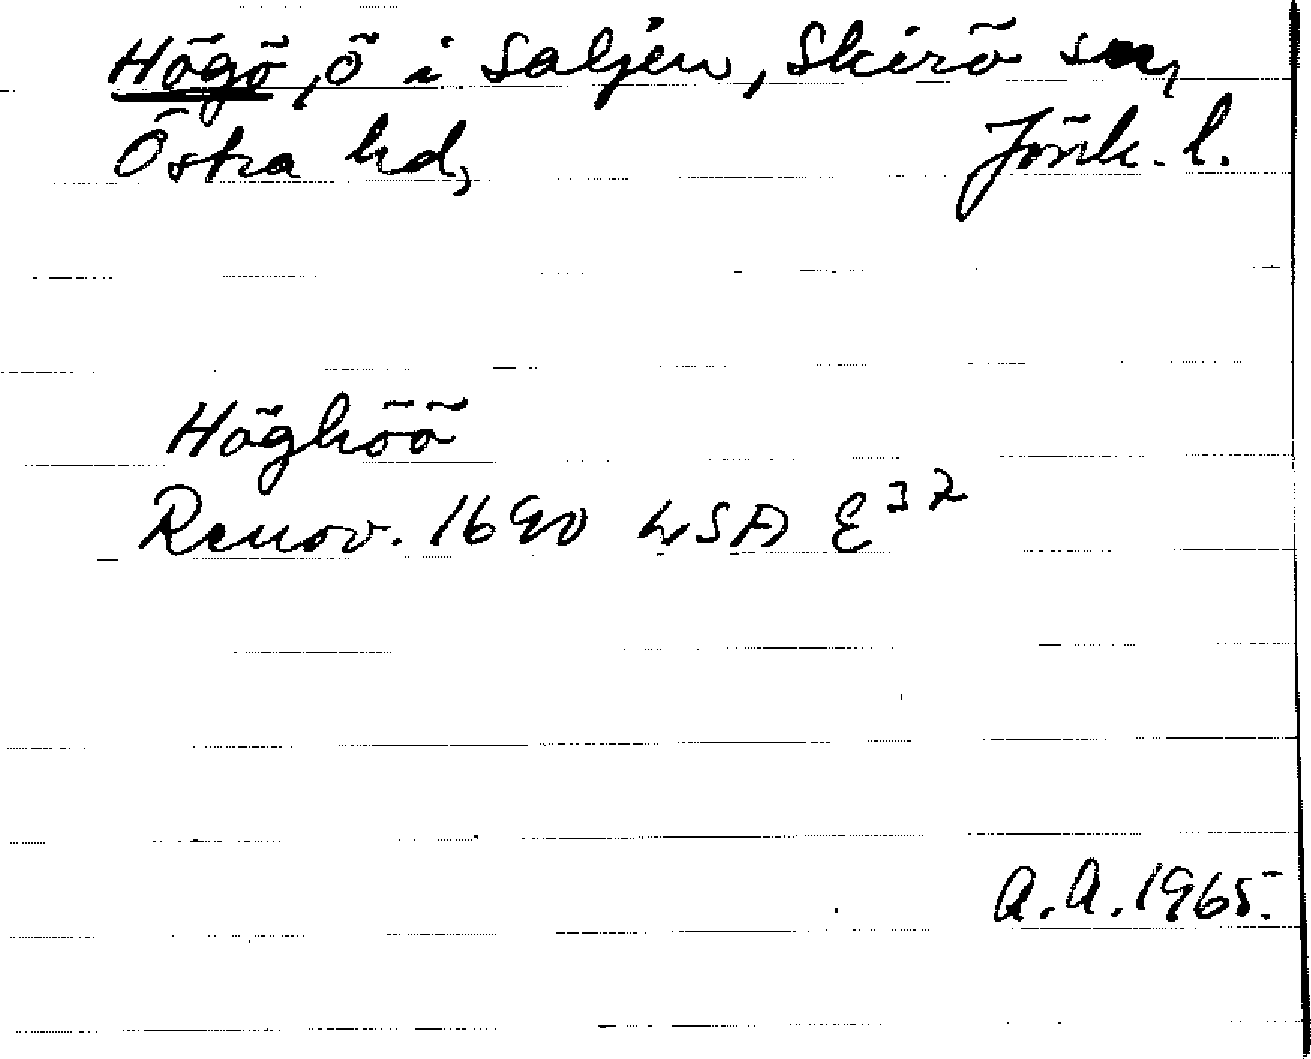 Högö, ö i Saljen, Skirö sn,
Östra hd, Jönk. l.
Höghöö
Renov. 1690 LSA E³²
A.A. 1965.